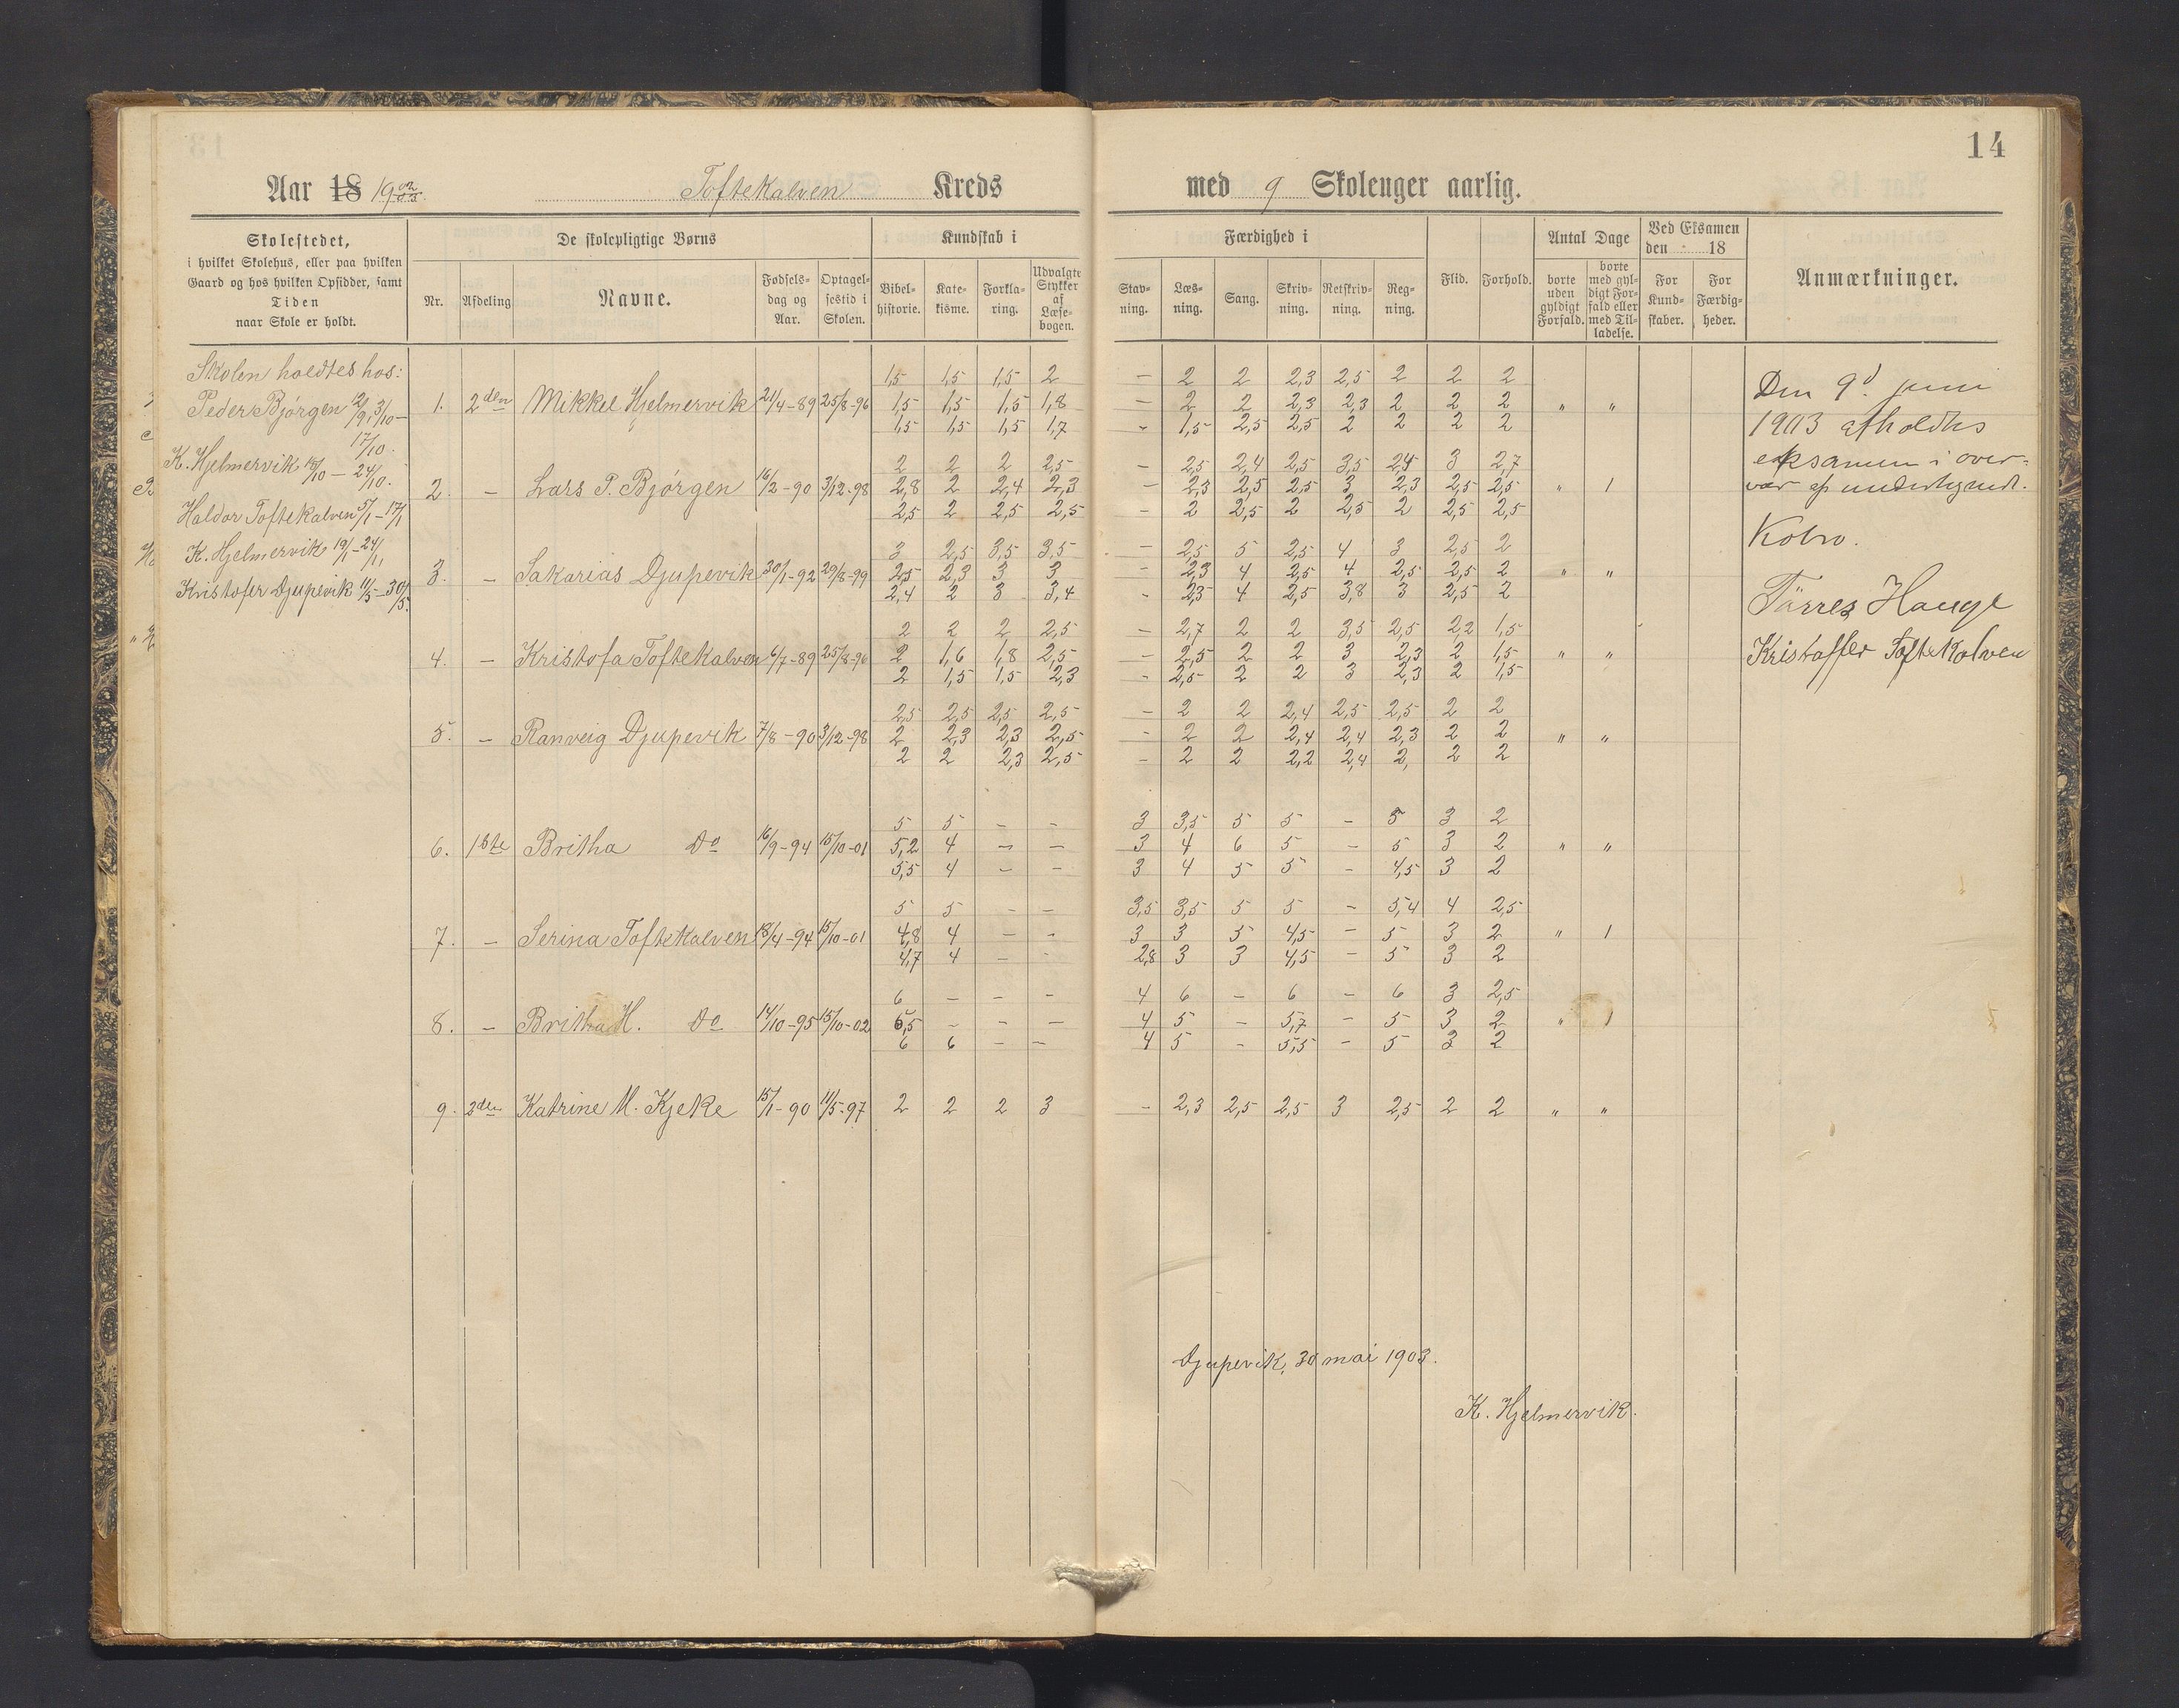 14
Aar 18 19 02/03. Toftekalven Kreds med 9 Skoleuger aarlig.
Skolestedet,
i hvilket Skolehus, eller paa hvilken
Gaard og hos hvilken Opsidder, samt
Tiden
naar Skole er holdt.
De skolepligtige Børns
Nr. Afdeling Navne. Fødsels-dag og Aar. Optagel-sestid i Skolen.
Kundskab i
Bibel-historie. Kate-kisme. Forkla-ring. Udvalgte Stykker af Læse-bogen.
Færdighed i
Stav-ning. Læs-ning. Sang. Skriv-ning. Retskriv-ning. Reg-ning.
Flid. Forhold.
Antal Dage
borte uden gyldigt Forfald. borte med gyl-digt For-fald eller med Til-ladelse.
Ved Eksamen
den 18
For Kund-skaber. For Færdig-heder.
Anmærkninger.
Skolen holdtes hos:
Peder Bjørgen 3/10 –
17/10.
K. Hjelmervik 15/10 – 24/10.
Haldor Toftekalven 5/1 – 17/1
K. Hjelmervik 19/1 – 24/1
Kristofer Djupevik 11/5 – 30/5.
1,5 1,5 1,5 2 – 2 2 2,3 2,5 2 2 2
1. 2den Mikkel Hjelmervik 21/4-89 25/8-96 1,5 1,5 1,5 1,8 – 2 2 2,3 2,3 2 2 2 " "
1,5 1,5 1,5 1,7 – 1,5 2,5 2,5 2 2 2 2
2 2 2 2,5 – 2,5 2,4 2,5 3,5 2,4 3 2,7
2. – Lars P. Bjørgen 16/2-90 3/12-98 2,8 2 2,4 2,3 – 2,3 2,5 2,5 3 2,3 2,5 2,5 " 1
2,5 2 2,5 2,5 – 2 2,5 2 2,5 2 2,5 2,5
3 2,5 3,5 3,5 – 2,5 5 2,5 4 3 2,5 2
3. – Sakarias Djupevik 30/1-92 29/8-99 2,5 2,3 3 3 – 2,3 4 2,5 4 2,5 2,5 2 " "
2,4 2 3 3,4 – 2,3 4 2,5 3,8 3 2,5 2
2 2 2 2,5 – 2,7 2 2 3,5 2,5 2,2 1,5
4. – Kristofa Toftekalven 6/7-89 25/8-96 2 1,6 1,8 2,5 – 2,5 2 2 3 2,3 2 1,5 " "
2 1,5 1,5 2,3 – 2,5 2 2 3 2,3 2 1,5
2,5 2,5 2,5 2,5 – 2 2 2,4 2,5 2,5 2 2
5. – Ranveig Djupevik 7/8-90 3/12-98 2 2,3 2,3 2,5 – 2 2 2,4 2,4 2,3 2 2 " "
2 2 2,3 2,5 – 2 2 2,2 2,4 2, 2 2
5 5 – – 3 3,5 5 5 – 5 3 2
6. 1ste Britha do 16/9-94 15/10-01 5,2 4 – – 3 4 6 5 – 5 3 2 " "
5,5 4 – – 3 4 5 5 – 4,5 3 2
5 5 – – 3,5 3,5 5 5 – 5,4 4 2,5
7. – Serina Toftekalven 18/4-94 15/10-01 4,8 4 – – 3 3 5 4,5 – 5 3 2 " 1
4,7 4 – – 2,8 3 3 4,5 – 5 3 2
6 – – – 4 6 – 6 – 6 3 2,5
8. – Britha H. do 14/10-95 15/10-02 6,5 – – – 4 5 – 5,7 – 5 3 2 " 1
6 6 – – 4 5 – 5,5 – 5 3 2
9. 2den Katrine M. Kjeke 15/1-90 11/5-97 2 2 2 3 – 2,3 2,5 2,5 3 2,5 2 2 " "
Den 9d juni
1903 afholdtes
eksamen i over-
vær af undertegnede.
Kolro.
Tørres Hauge
Kristoffer Toftekalven
Djupevik, 30 mai 1903.
K. Hjelmervik.